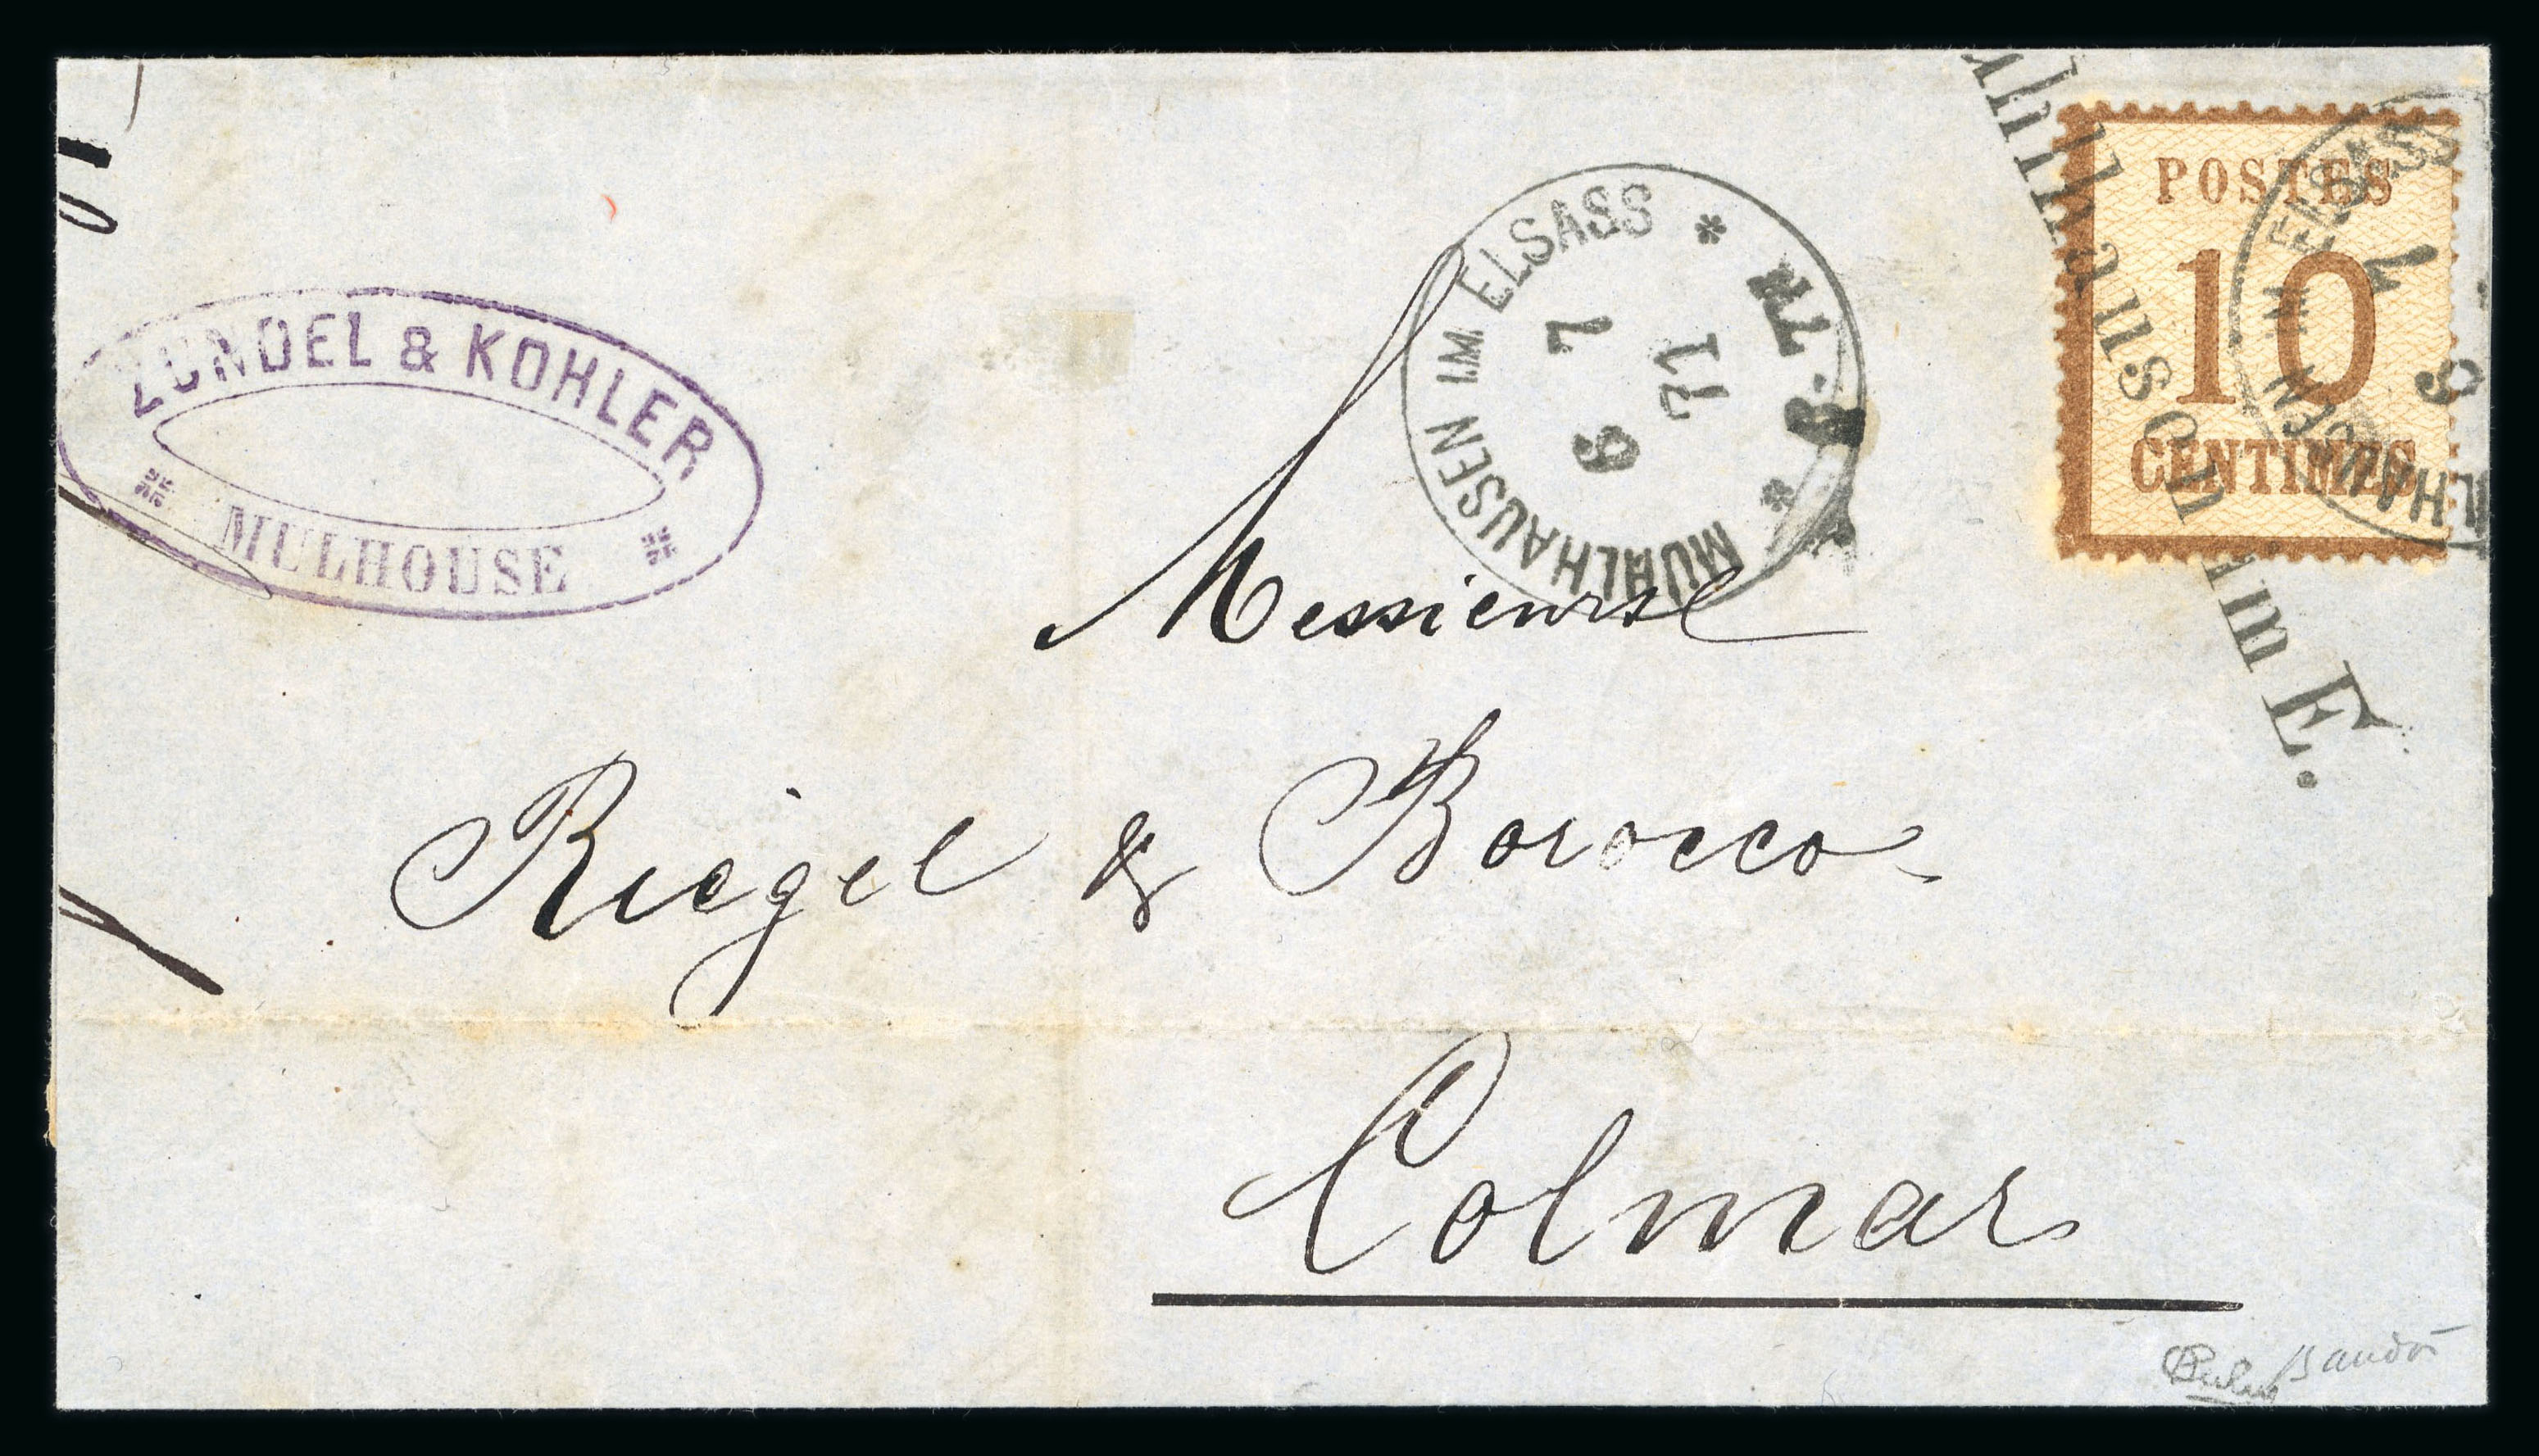 ZUNDEL & KOHLER
MULHOUSE
MUELHAUSEN I.M. ELSASS
7
6
71
POSTES
10
CENTIMES
Mülhausen im E.
Messieurs
Riegel & Borocco
Colmar